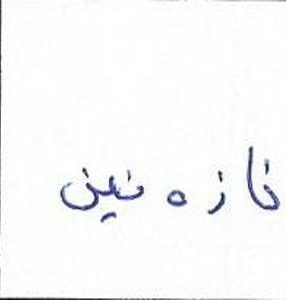 نازه نین